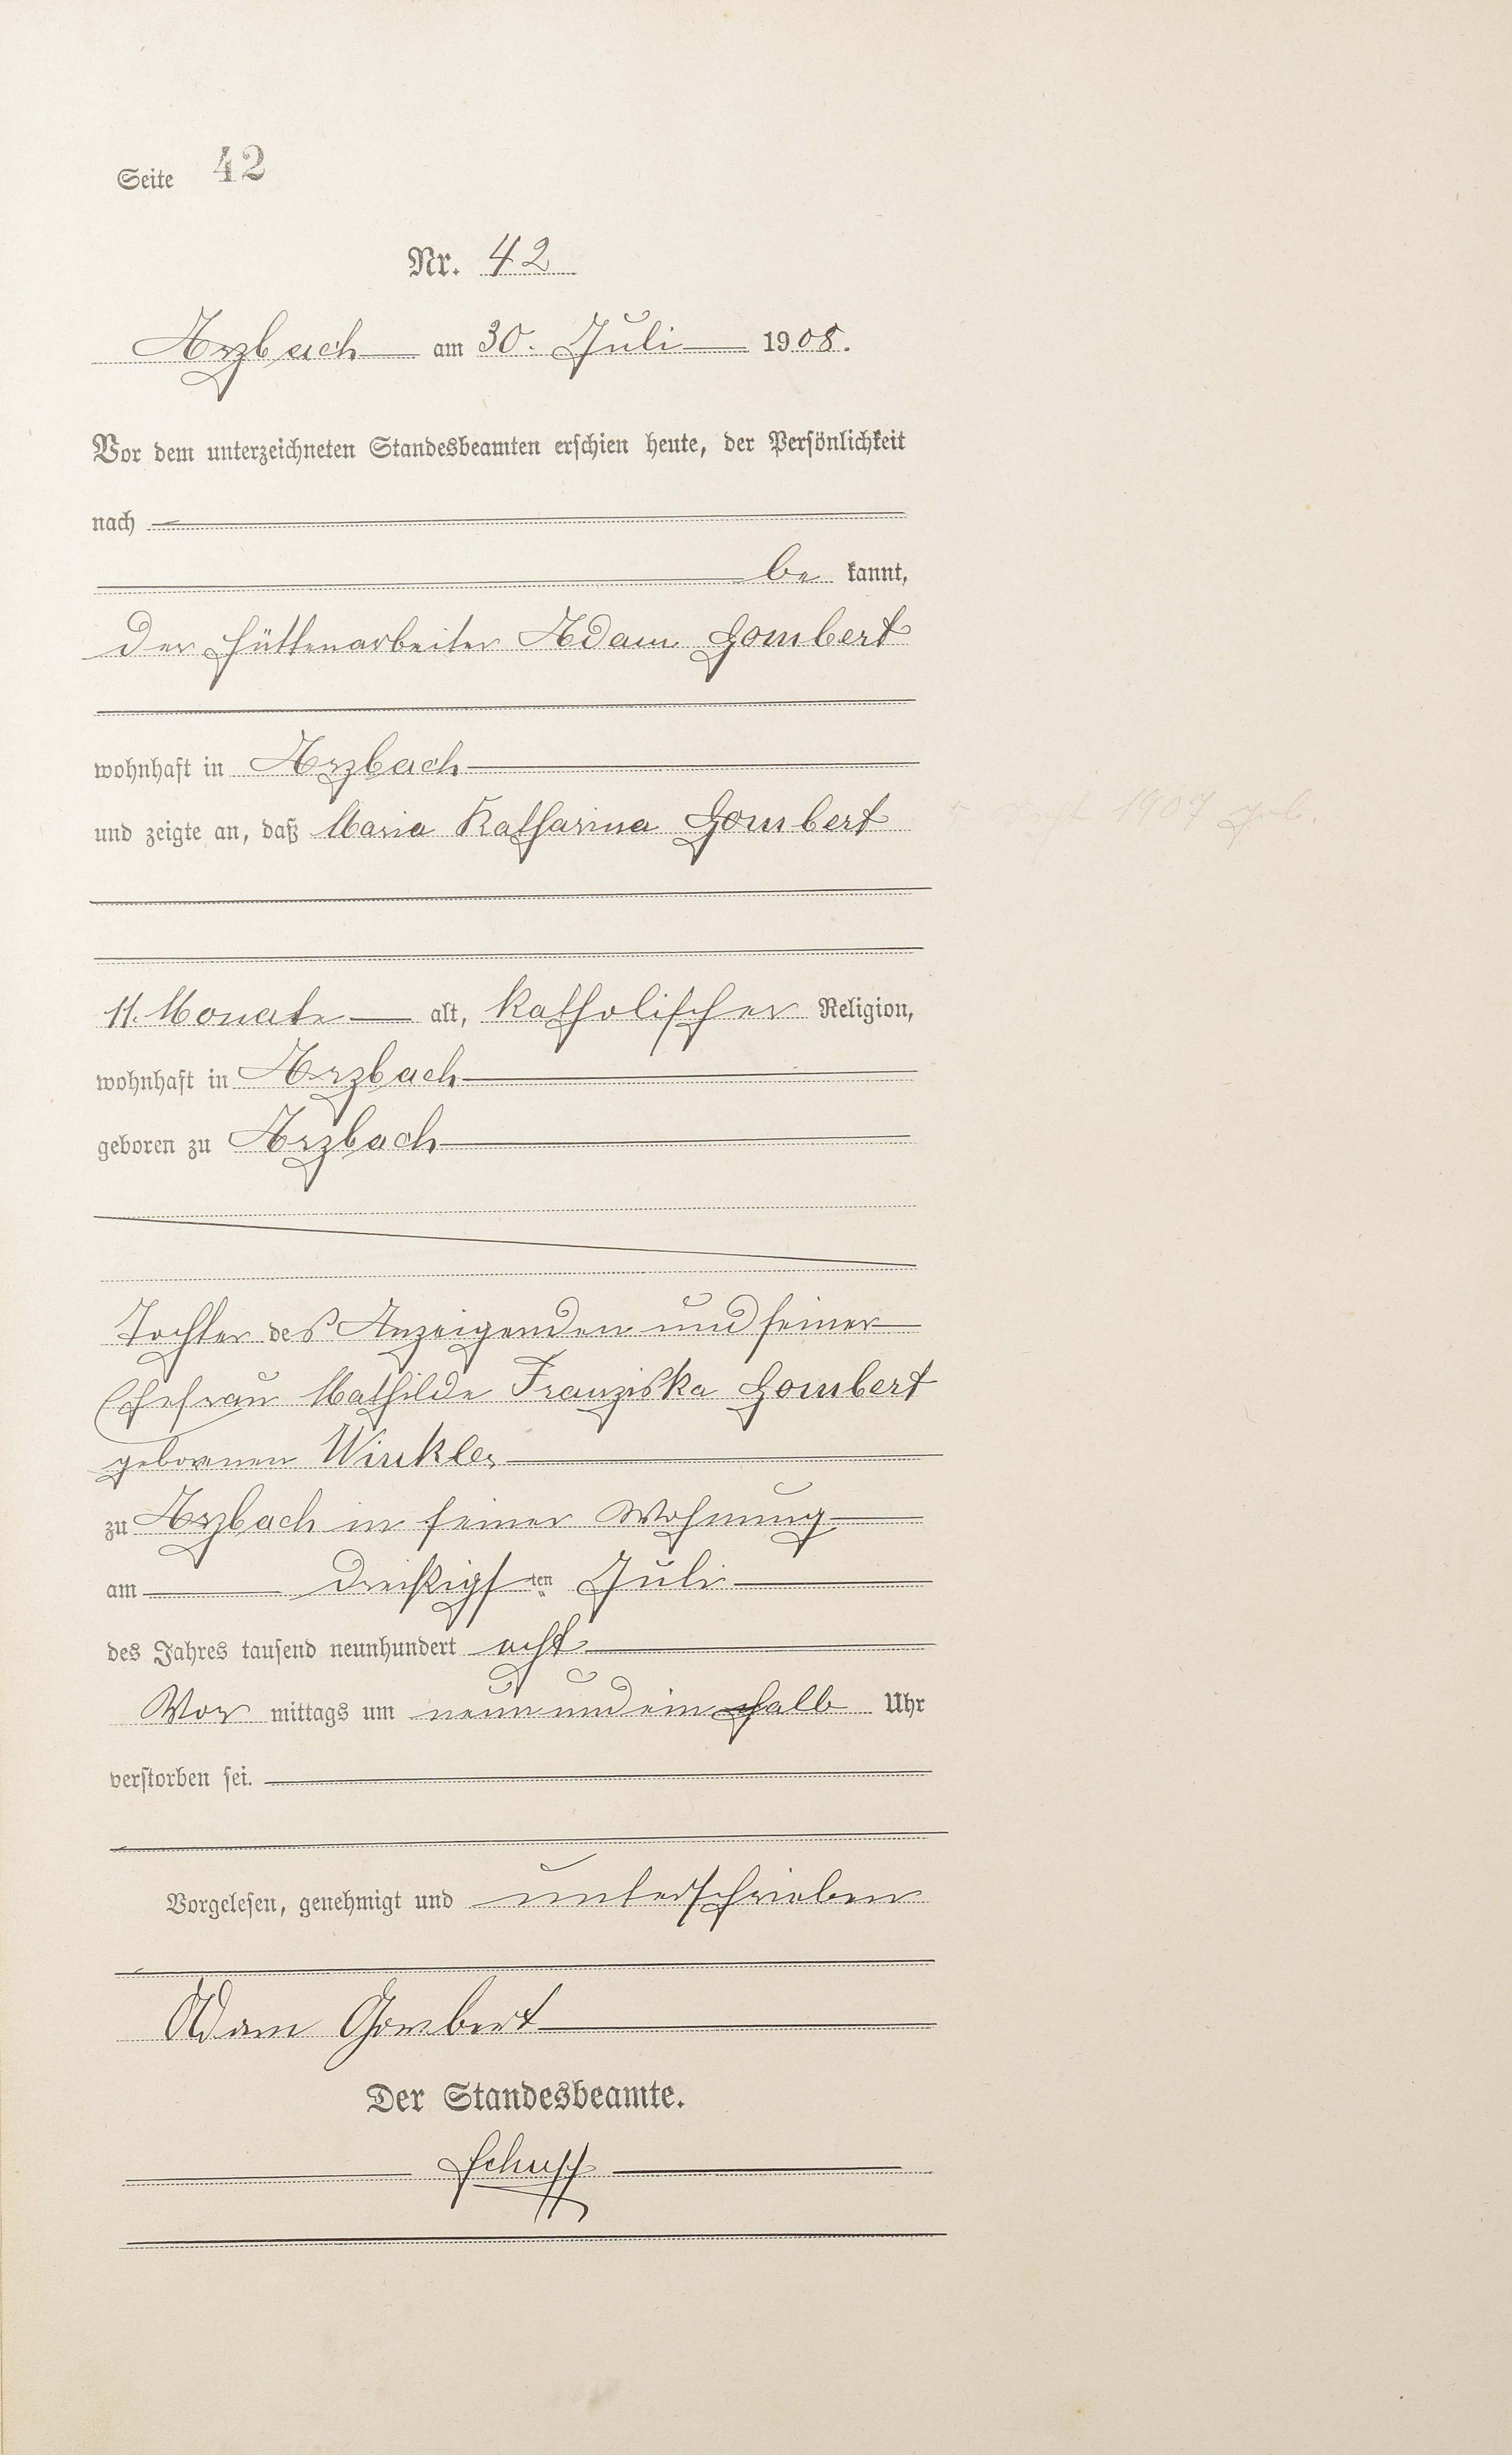 Seite 42
Nr. 42
Arzbach am 30. Juli 1908.
Vor dem unterzeichneten Standesbeamten erschien heute, der Persönlichkeit
nach
be kannt,
der Hüttenarbeiter Adam Gombert
wohnhaft in Arzbach
und zeigte an, daß Maria Katharina Gombert
1907 geb.
11. Monate alt, katholischer Religion,
wohnhaft in Arzbach
geboren zu Arzbach
Tochter des Anzeigenden und seiner
Ehefrau Mathilde Franziska Gombert
geborenen Winkler
zu Arzbach in seiner Wohnung
am dreißigsten Juli
des Jahres tausend neunhundert acht
Vor mittags um neun und ein halb Uhr
verstorben sei.
Vorgelesen, genehmigt und unterschrieben
Adam Gombert
Der Standesbeamte.